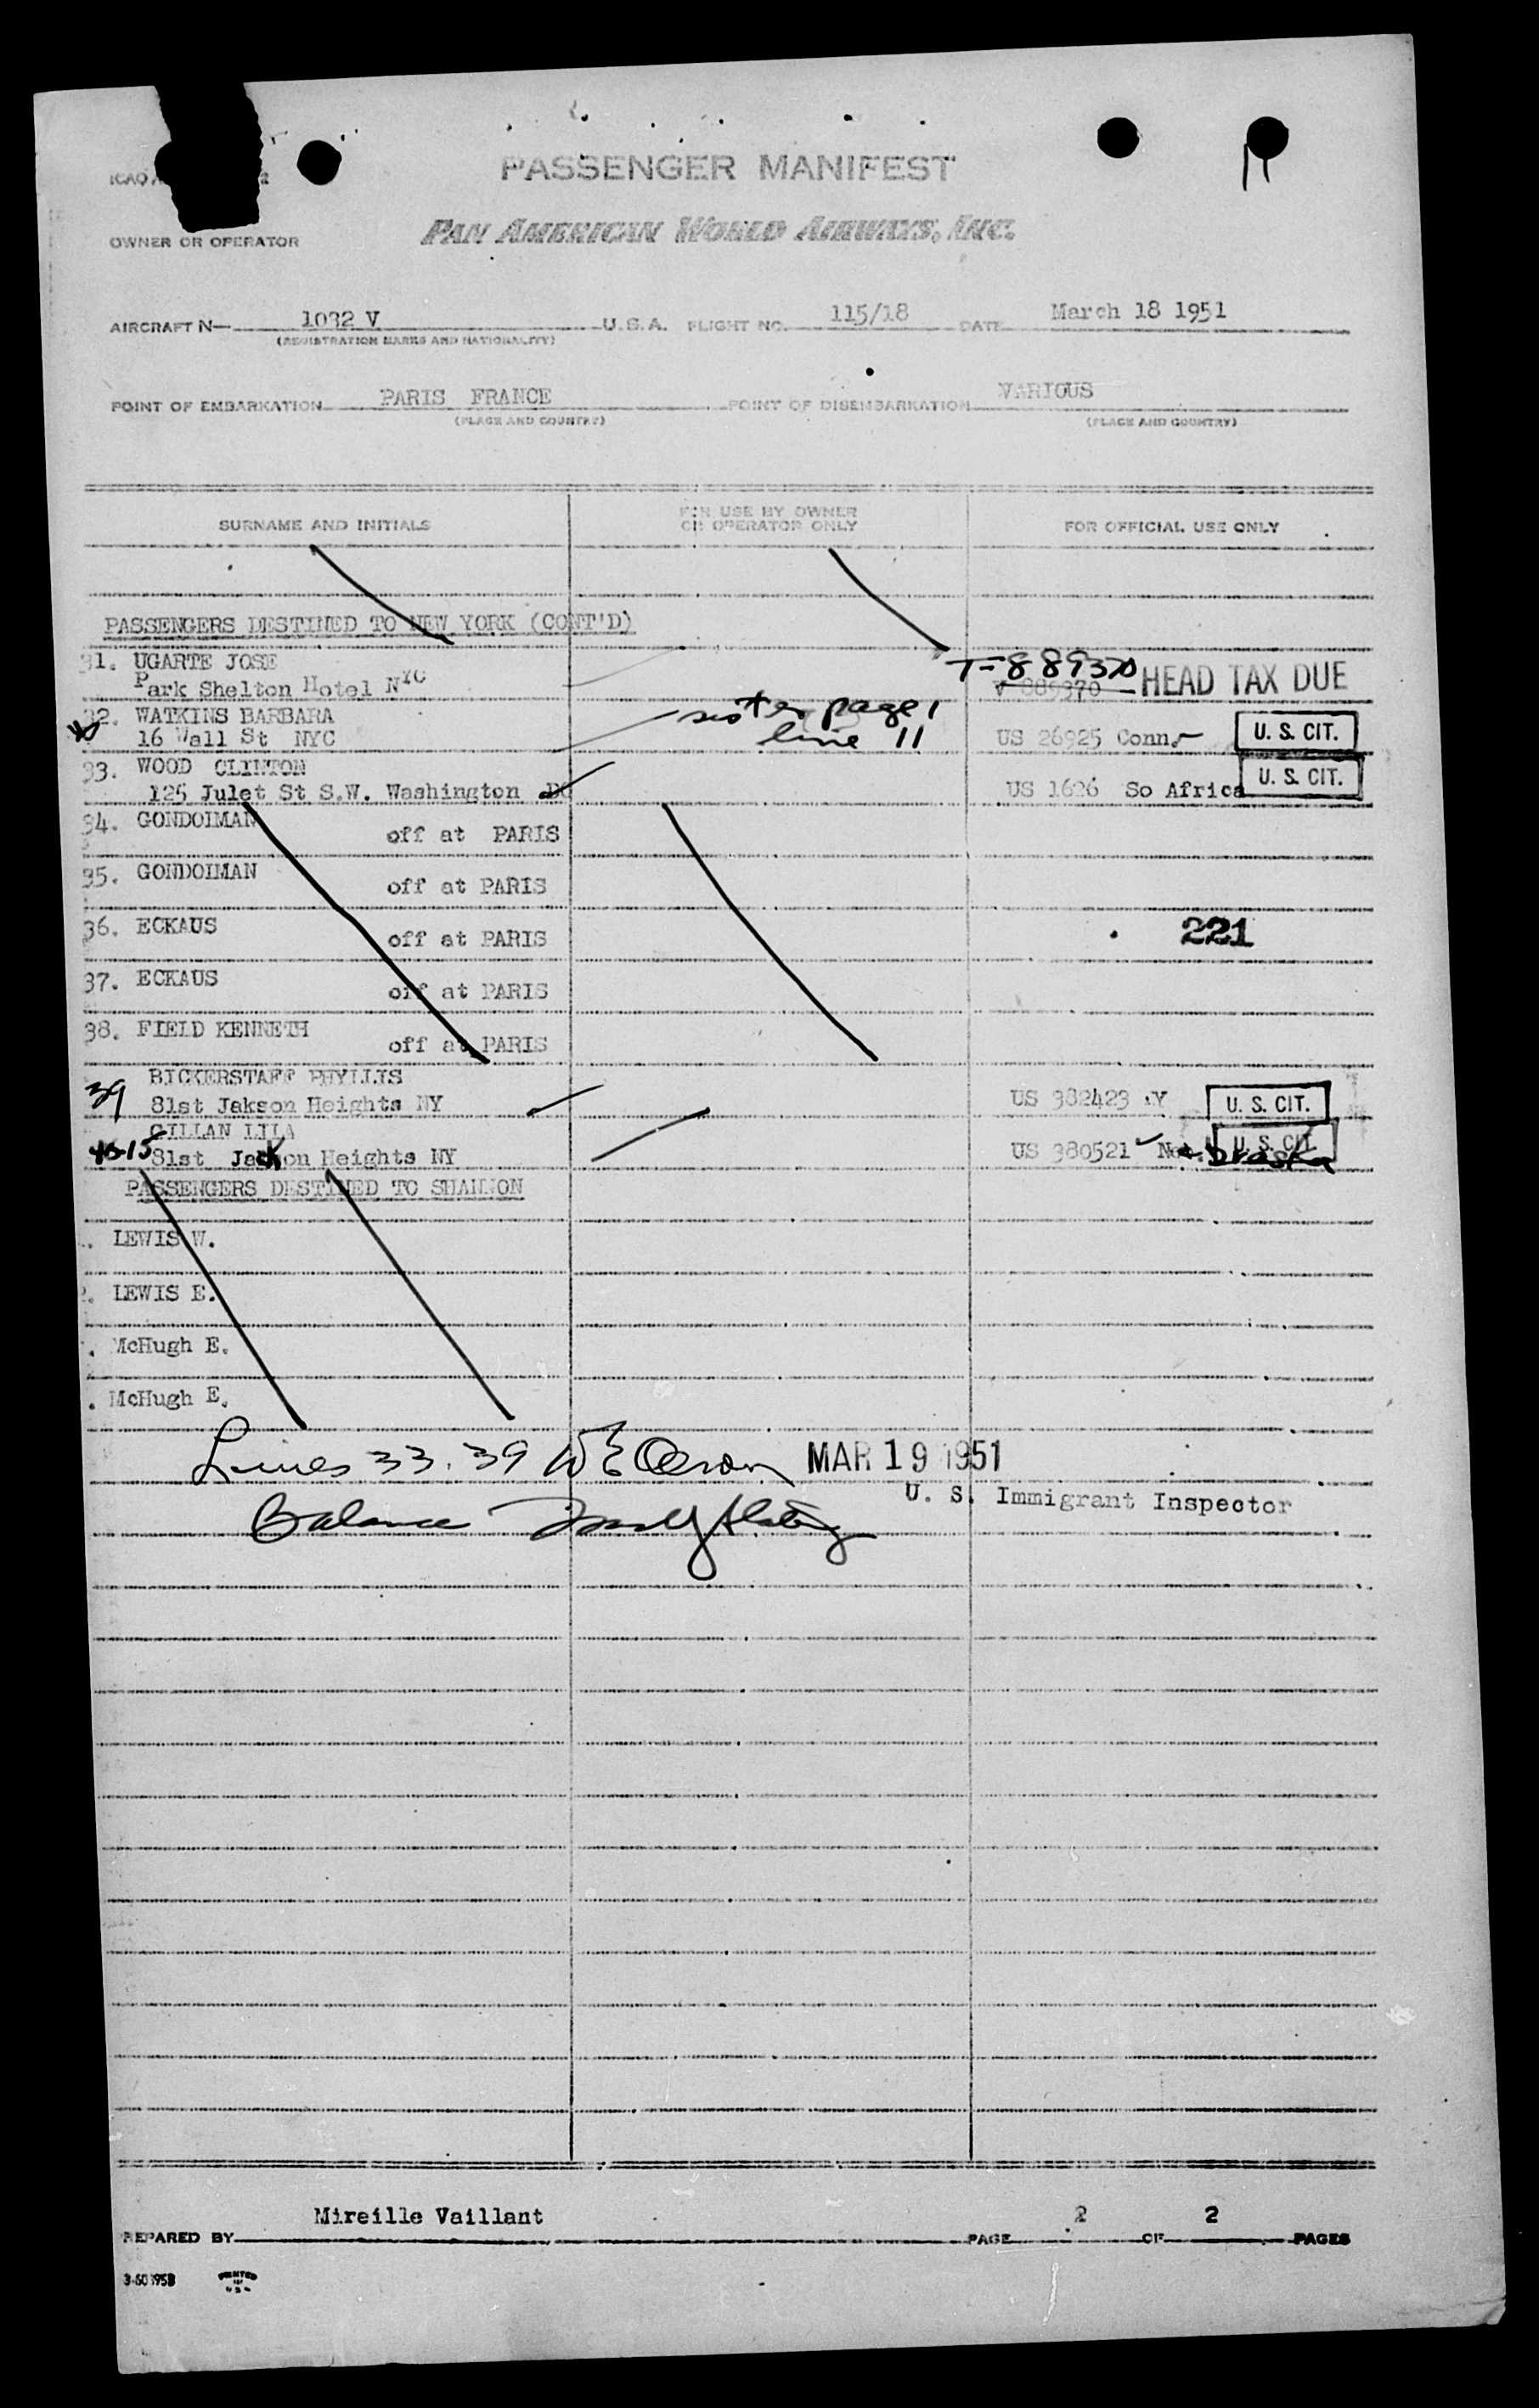 ICAO
PASSENGER MANIFEST
OWNER OR OPERATOR PAN AMERICAN WORLD AIRWAYS, INC.
AIRCRAFT N— 1032 V U.S.A. FLIGHT NO. 115/18 DATE March 18 1951
(REGISTRATION MARKS AND NATIONALITY)
POINT OF EMBARKATION PARIS FRANCE POINT OF DISEMBARKATION VARIOUS
(PLACE AND COUNTRY) (PLACE AND COUNTRY)
SURNAME AND INITIALS FOR USE BY OWNER OR OPERATOR ONLY FOR OFFICIAL USE ONLY
PASSENGERS DESTINED TO NEW YORK (CONT'D)
31. UGARTE JOSE T-889370
Park Shelton Hotel NYC V 889370 HEAD TAX DUE
32. WATKINS BARBARA sister page 1
16 Wall St NYC line 11 US 26925 Conn. U. S. CIT.
33. WOOD CLINTON
125 Julet St S.W. Washington US 1626 So Africa U. S. CIT.
34. GONDOIMAN
off at PARIS
35. GONDOIMAN
off at PARIS
36. ECKAUS 221
off at PARIS
37. ECKAUS
off at PARIS
38. FIELD KENNETH
off at PARIS
39 BICKERSTAFF PHYLLIS
81st Jakson Heights NY US 382423 NY U. S. CIT.
GILLAN LILA
81st Jackson Heights NY US 380521 Nebraska U. S. CIT.
PASSENGERS DESTINED TO SHANNON
. LEWIS W.
. LEWIS E.
. McHugh E.
. McHugh E.
Lines 33. 39 MAR 19 1951
U. S. Immigrant Inspector
Balance
Mireille Vaillant
PREPARED BY PAGE 2 OF 2 PAGES
PRINTED IN U S A